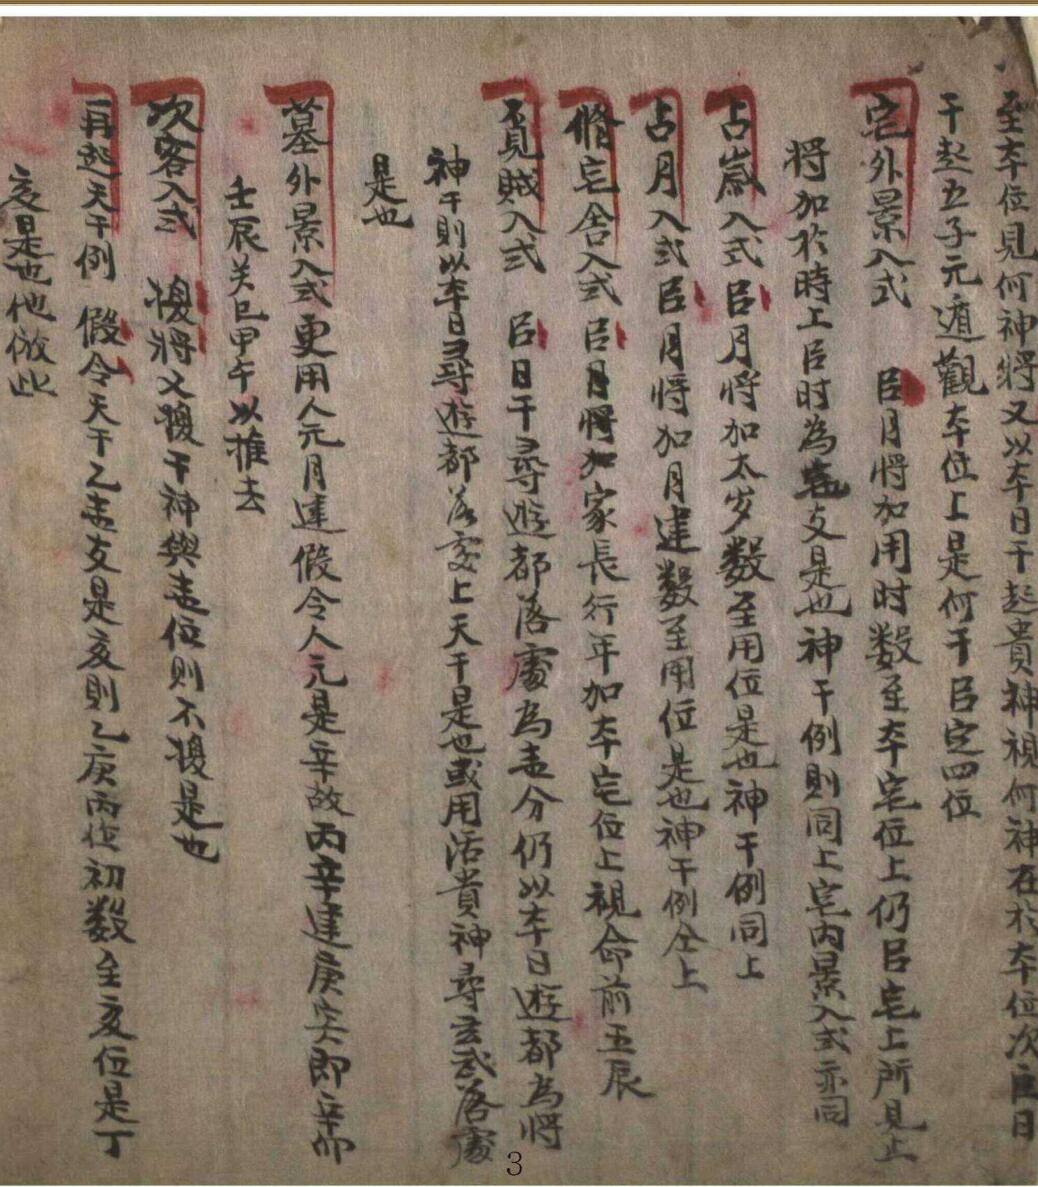 至夲位見何神將又以夲日干起貴神視何神在於夲位次㠯日
干起五子元遁觀夲位上是何干㠯定四位
宅外景入式 㠯月將加用时数至夲宅位上仍㠯宅上所見上
將加於時上㠯时為支是也神干例則同上宅内景入式亦同
占嵗入式㠯月將加太岁数至用位是也神干例同上
占月入式㠯月將加月建数至用位是也神干例仝上
脩宅舍入式㠯月將加家長行年加夲宅位上視命前五辰
覔贼入式 㠯日干尋遊都落處為盂分仍以夲日遊都為將
神干則以夲日尋遊都落處上天干是也或用活貴神尋玄武落處
是也
墓外景入式更用人元月建假令人元是辛故丙辛建庚寅即辛卯
壬辰关巳甲午以推去
次客入式 換將又換干神與盂位則不換是也
再起天干例 假令天干乙盂支是亥則乙庚丙作初数至亥位是丁
亥是也他倣此
3